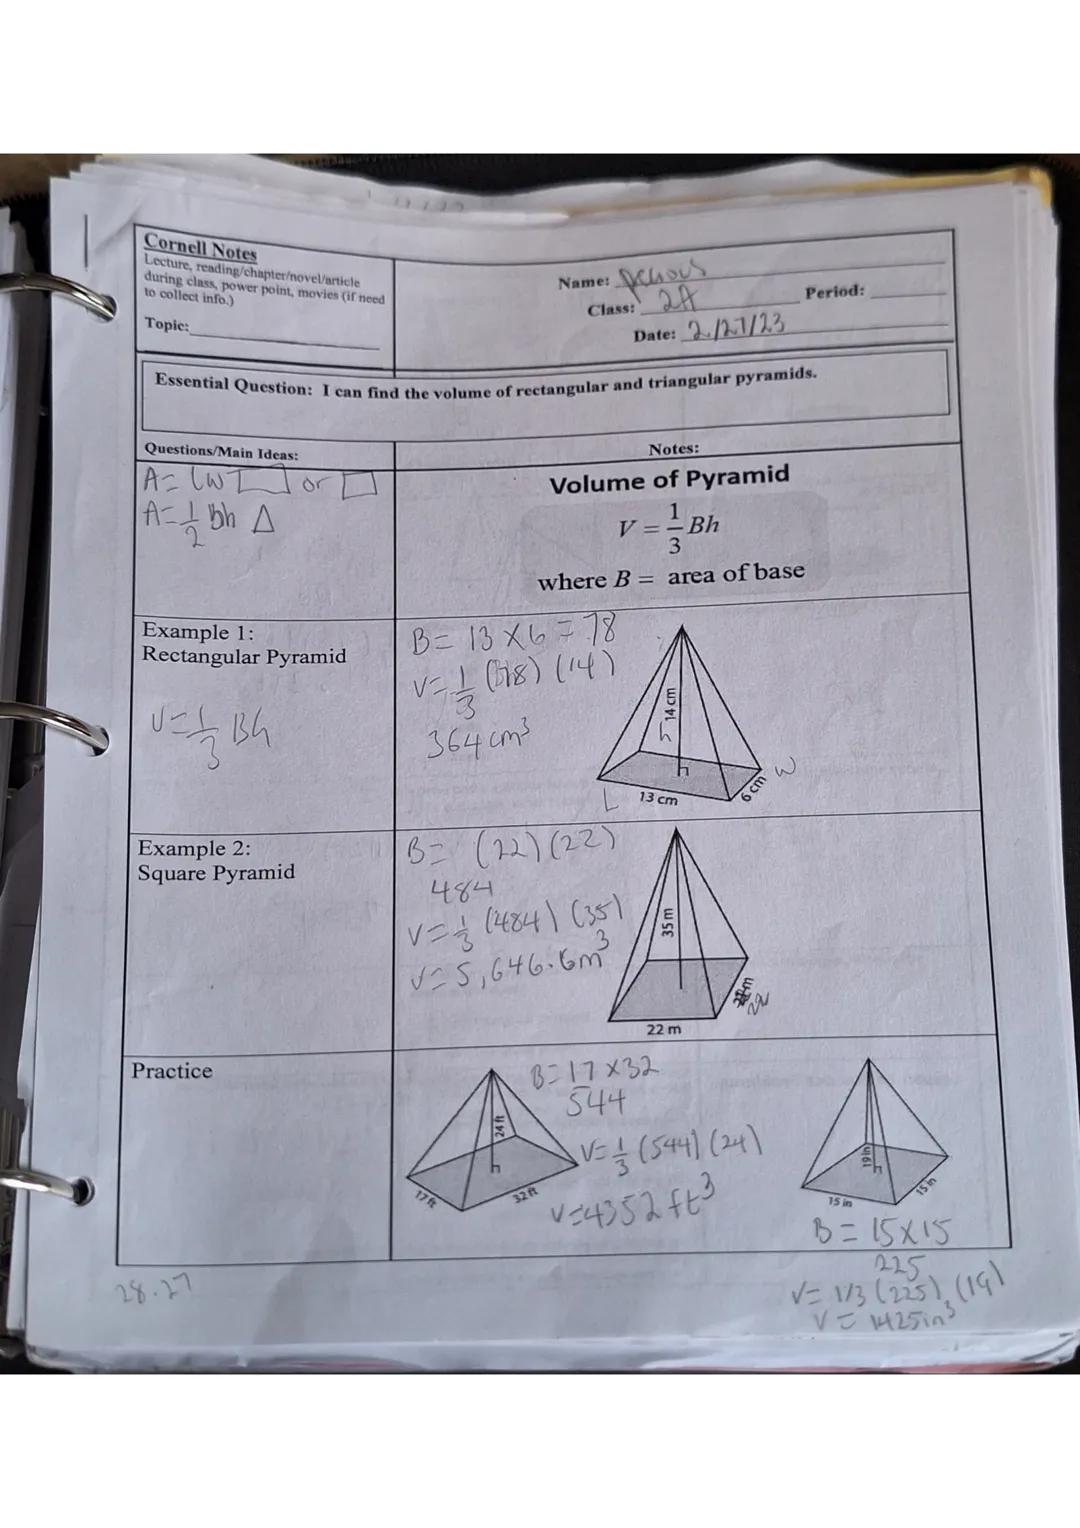 Cornell Notes
Lecture, reading/chapter/novel/article
during class, power point, movies (if need
to collect info.)
Topic:
Name:
Class: 2A
Period:
Date: 2/27/23
Essential Question: I can find the volume of rectangular and triangular pyramids.
Questions/Main Ideas:
A= lw or
A= 1/2 bh
Notes:
Volume of Pyramid
V = 1/3 Bh
where B = area of base
Example 1:
Rectangular Pyramid
V= 1/3 Bh
B= 13 x 6 = 78
V= 1/3 (78) (14)
364 cm³
h 14 cm
L 13 cm
6 cm W
Example 2:
Square Pyramid
B= (22)(22)
484
V= 1/3 (484) (35)
V= 5,646.6m³
35 m
22 m
22
Practice
24 ft
17 ft
32 ft
B= 17 x32
544
V= 1/3 (544) (24)
V=4352 ft³
19 in
15 in
15 in
B= 15x15
225
V= 1/3 (225) (19)
V= 1425in³
28.27